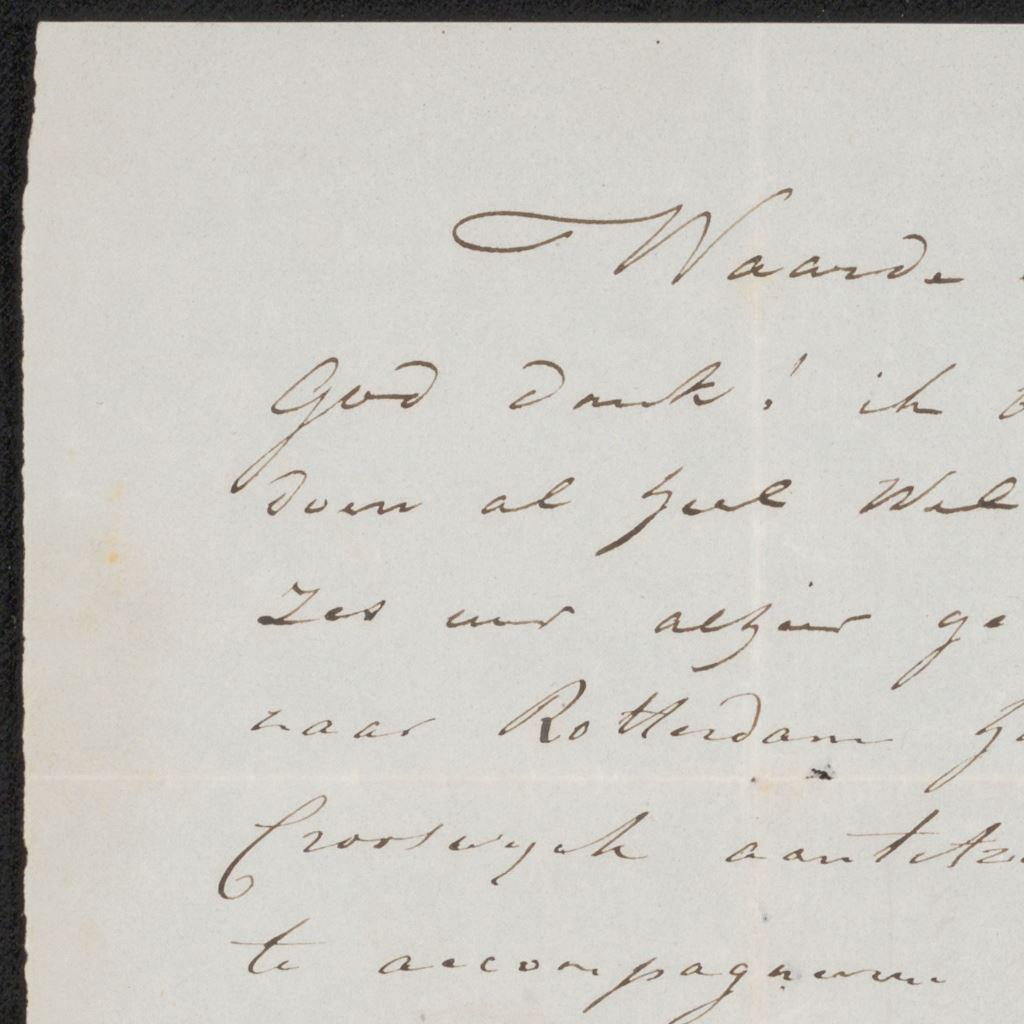 Waarde
God dank! ik
doen al heel wel
zes uur alhier ge
naar Rotterdam
Crooswyck
te accompagneeren